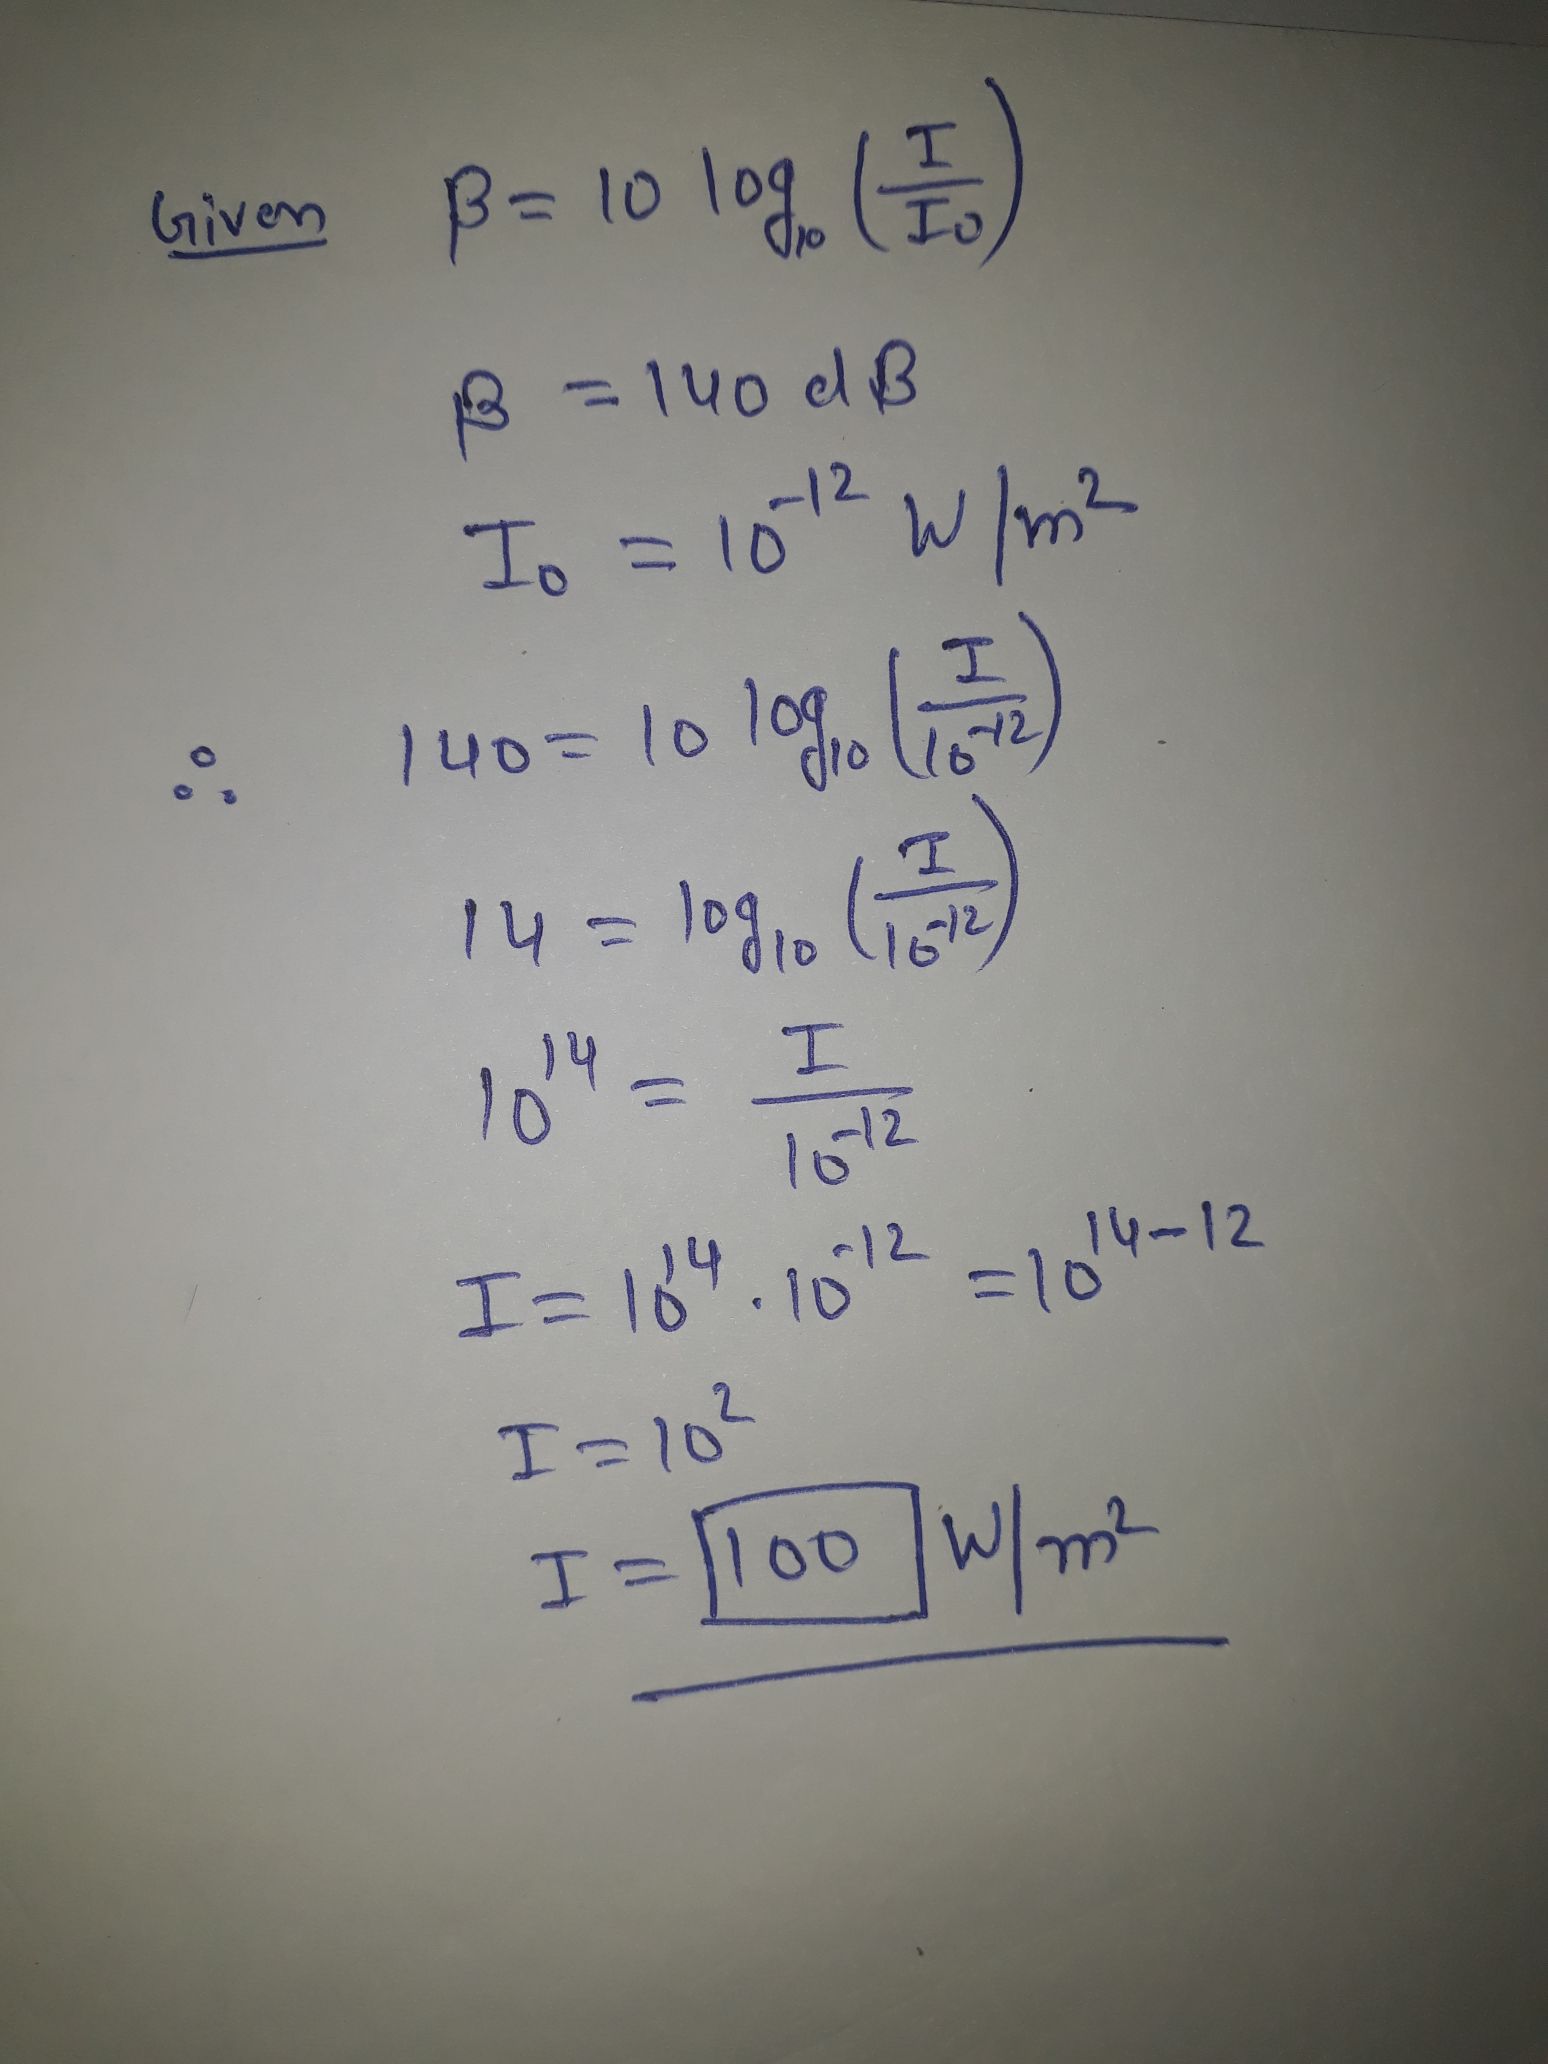 Given β = 10 log₁₀ (I/I₀)
β = 140 dB
I₀ = 10⁻¹² W/m²
∴ 140 = 10 log₁₀ (I/10⁻¹²)
14 = log₁₀ (I/10⁻¹²)
10¹⁴ = I/10⁻¹²
I = 10¹⁴ . 10⁻¹² = 10¹⁴⁻¹²
I = 10²
I = 100 W/m²